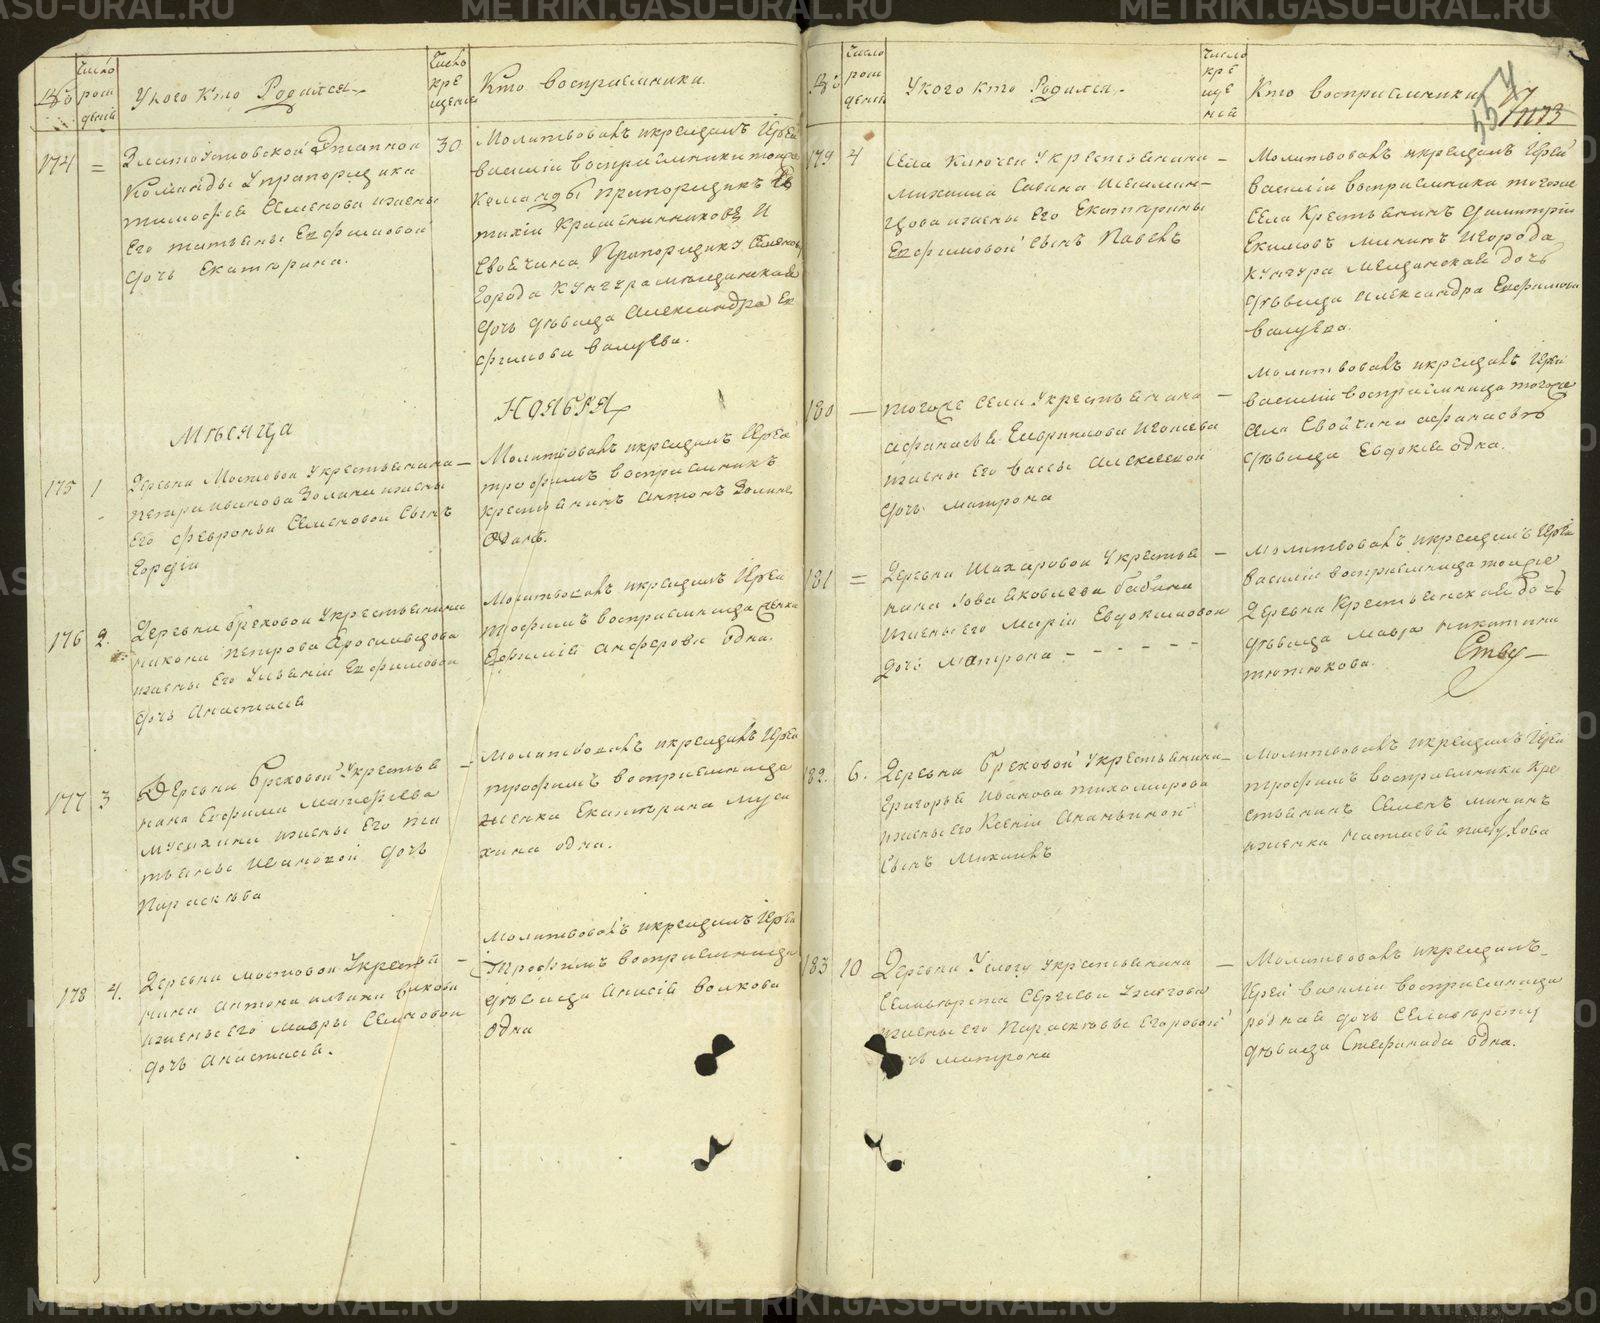 №
Число рож дения
У кого кто Родился
Число кре щения
Кто восприемники
174 = Златоустовской Этапной
Команды У прапорщика
тимофея Семенова жены
Его татьяны Евфимовой
дочь Екатерина.
30
Молитвовалъ икрещалъ Іерей
василіи восприемники тоиже
Команды прапорщикъ
Города Кунгура мещанская
дочь девица Александра Ев
фимова валуева.
Месяца
Ноября
175 1
Деревни Мостовой Укрестьянина
петра иванова Золина жены
Его февроньи Семеновой Сынъ
Георгіи
Молитвовалъ икрещалъ Іерей
трофимъ восприемникъ
крестьянинъ антонъ Золинъ
Одинъ.
176 2.
Деревни бреховой Укрестьянина
никона петрова Ярославцова
жены Его Ульяніи Евфимовой
дочь Анастасія
Молитвовалъ икрещалъ Іерей
трофимъ восприемница женка
Евфимія анферова одна.
177 3
Деревни бреховой Укрестья
нина Евфима Матфеева
мусихина жены Его та
тьяны Ивановой дочь
Параскева
Молитвовалъ икрещалъ Іерей
трофимъ восприемница
женка Екатерина Муси
хина одна.
178 4.
Деревни мостовой Укрестья
нина антона ильина волкова
жены Его мавры Семеновой
дочь анастасія.
Молитвовалъ икрещалъ Іерей
Трофимъ восприемница
девица анисія волкова
Одна
№
Число рож дения
У кого кто Родился
Число кре ще ний
Кто восприемники
179 4
Села Ключей Укрестьянина
михаила Савина
жены Его Екатерины
Евфимовой Сынъ Павелъ
Молитвовалъ икрещалъ Іерей
василіи восприемники тогоже
Села Крестьянинъ Димитріи
Екимовъ мининъ игорода
кунгура Мещанская дочь
девица Александра Евфимова
валуева.
180 — тогоже Села Укрестьянина
афанасья Гаврилова
жены Его вассы Алексеевой
дочь матрона
Молитвовалъ икрещалъ Іерей
василіи восприемница тогоже
девица Евдокія одна.
181 =
Деревни Шахаровой Укрестья
нина Іова яковлева бабина
жены Его Маріи Евдокимовой
дочь матрона - - - - -
Молитвовалъ икрещалъ Іерей
василіи восприемница тойже
Деревни Крестьянская дочь
девица мавра никитина
тютюкова.
182. 6.
Деревни бреховой Укрестьянина
Григорья иванова тихомирова
жены Его Ксеніи Ананьиной
Сынъ Михаилъ
Молитвовалъ икрещалъ Іерей
трофимъ восприемники кре
стьянинъ Семенъ мининъ
женка настасья пастухова
183 10
Деревни Усмогу Укрестьянина
Селиверста Сергеева
жены Его Параскевы Егоровой
дочь матрона
Молитвовалъ икрещалъ
Іерей василіи восприемница
родная дочь Селиверсту
девица Стефанида одна.
METRIKI.GASU-URAL.RU